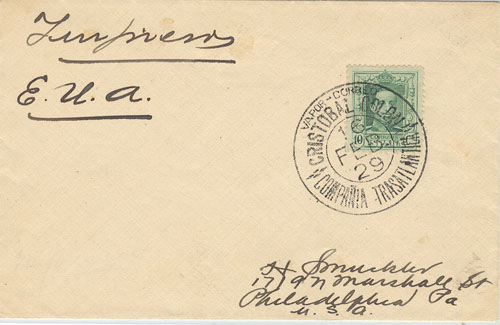 Impresos
E.U.A.
VAPOR-CORREO
CRISTOBAL COLON
16
FEB
29
COMPAÑIA TRASATLANTICA
10
Smuckler
Marshall St
Philadelphia Pa
U.S.A.